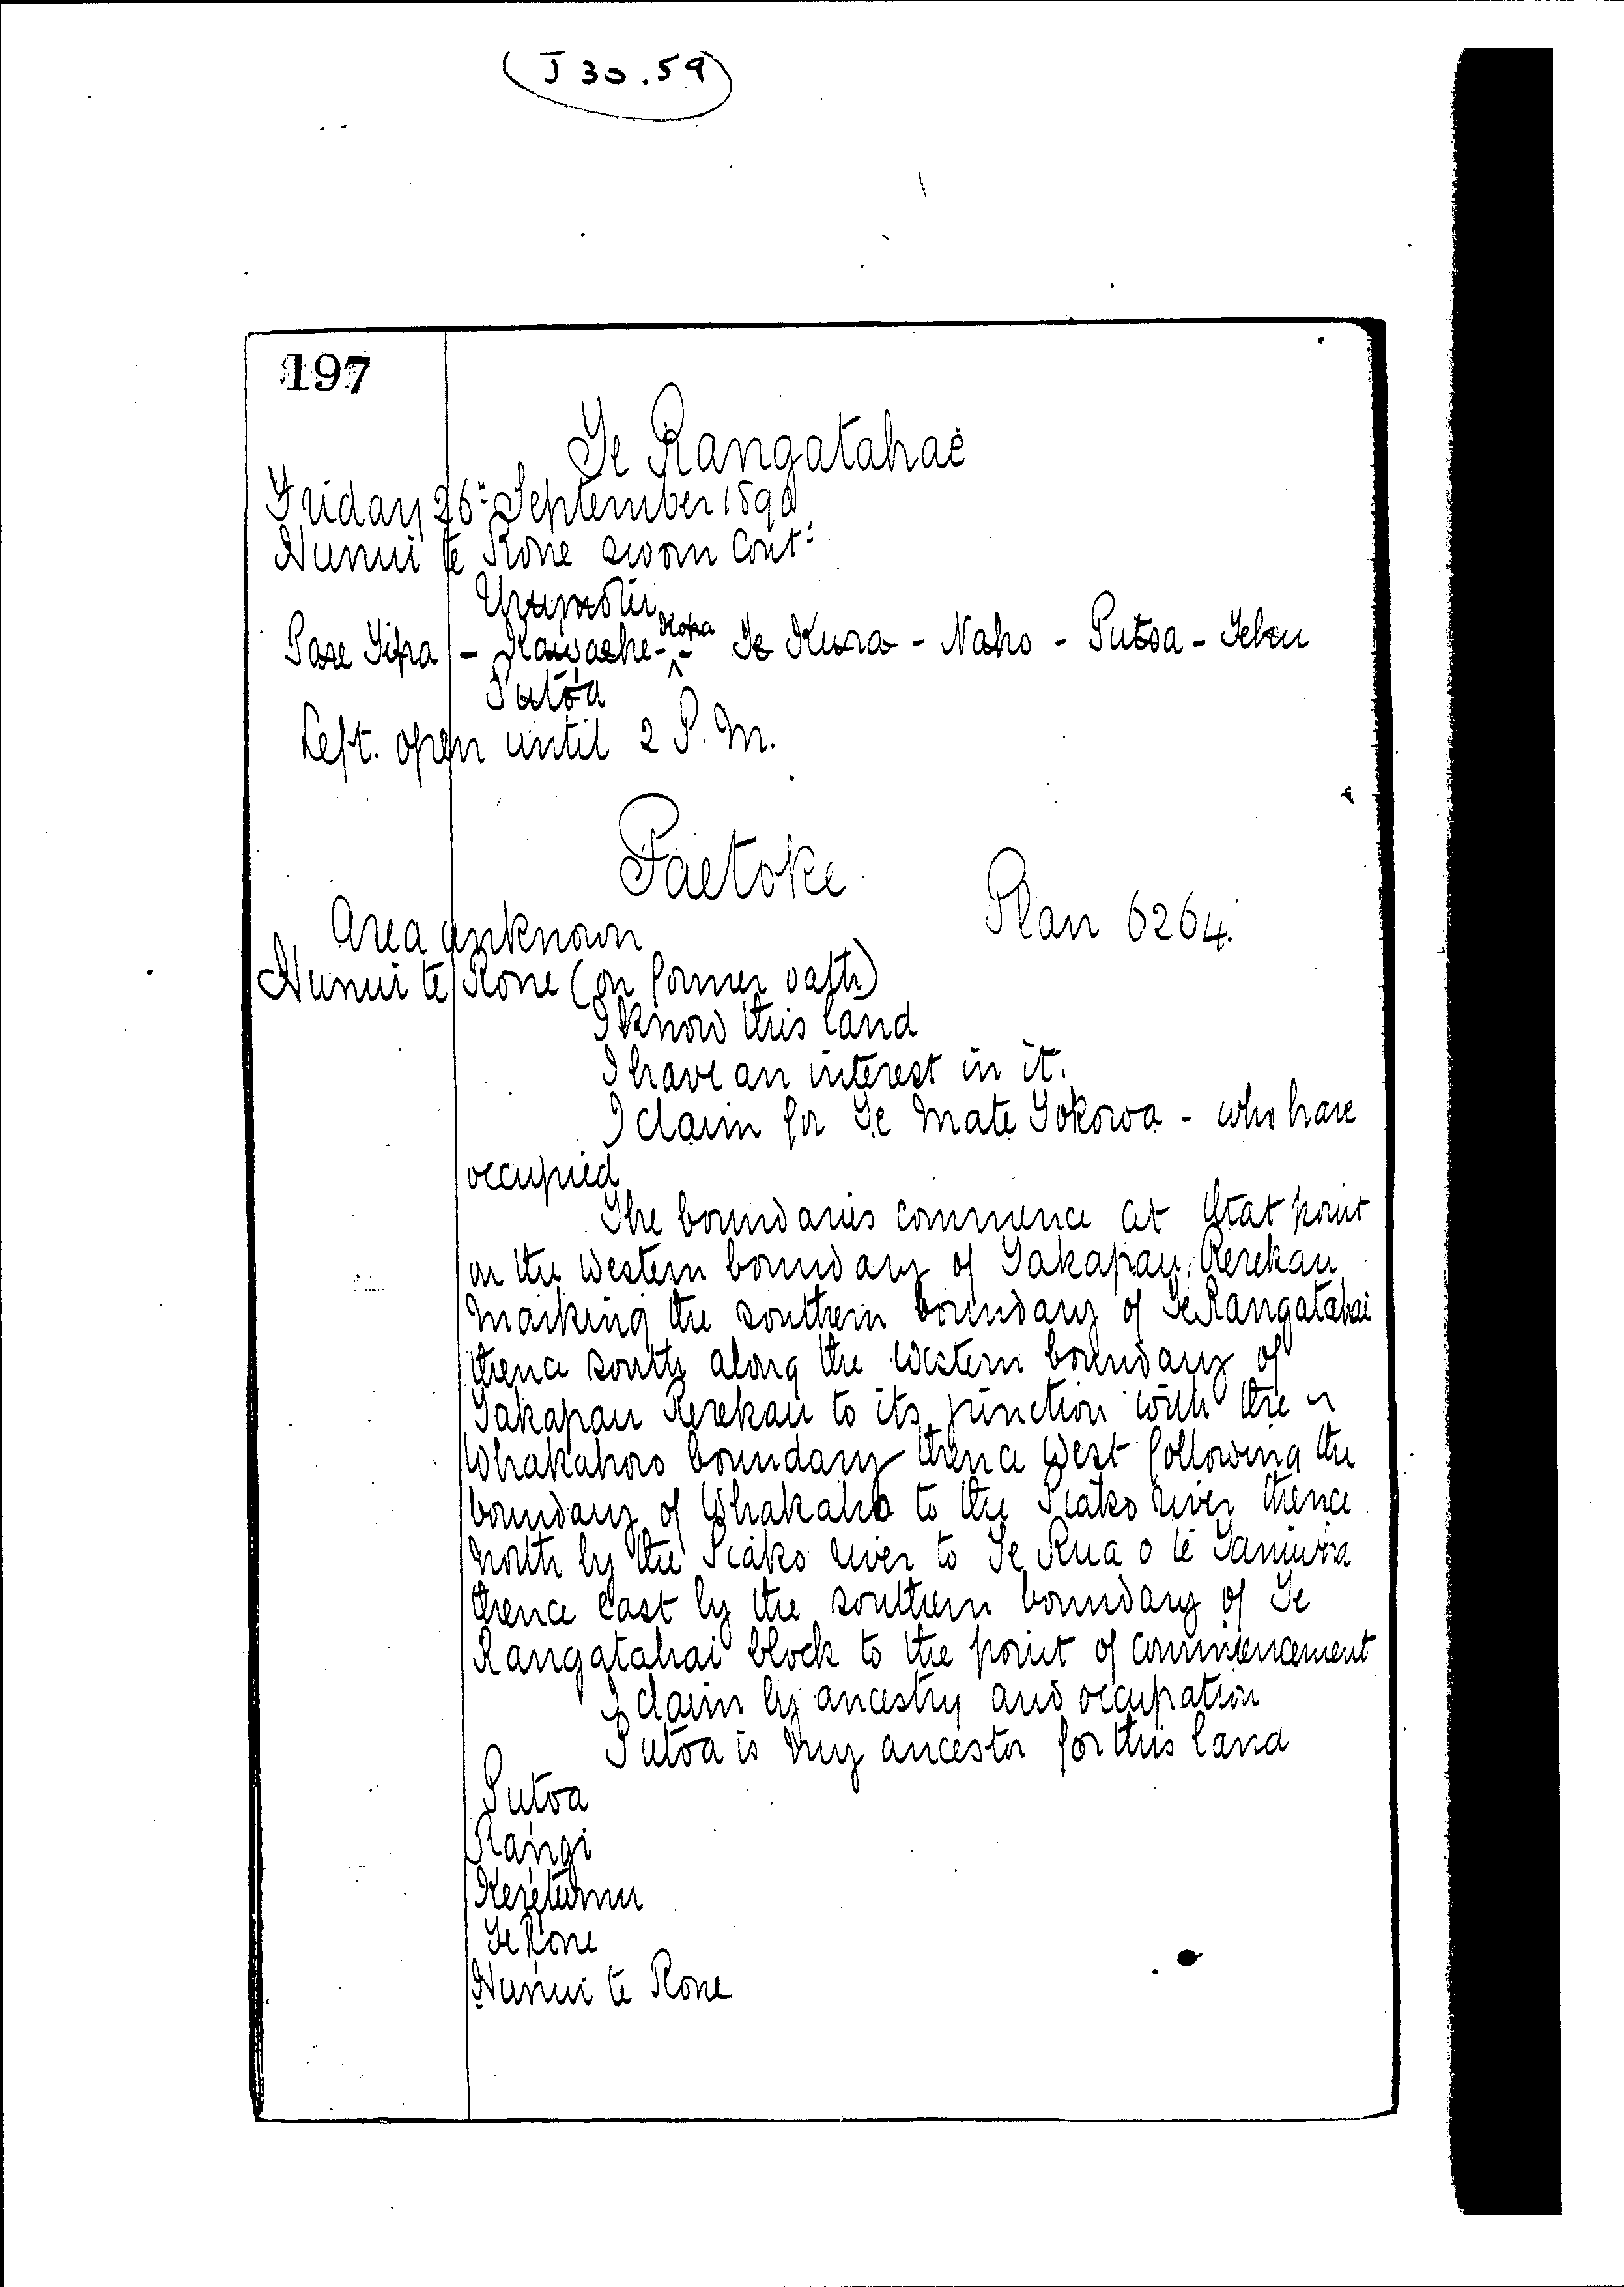 (J 30.59)
197
Te Rangatahae
Friday 26th September 1890
Hunui te Rone sworn Cont:
Pae Tipa - Kawaehe - Hopa - Te Kura - Naho - Putoa - Tehu
Putoa
Left. open until 2 P.M.
Paetoke
Area unknown Plan 6264.
Hunui te Rone (on former oath)
I know this land
I have an interest in it.
I claim for Te Mate Tokowa - who have
occupied
The boundaries commence at that point
on the western boundary of Takapau Rerekau
marking the southern boundary of Te Rangatahai
thence south along the western boundary of
Takapau Rerekau to its junction with the
Whakahoro boundary thence west following the
boundary of Whakaho to the Piako river thence
north by the Piako river to Te Rua o te Taniwha
thence east by the southern boundary of Te
Rangatahai block to the point of commencement
I claim by ancestry and occupation
Putoa is my ancestor for this land
Putoa
Rangi
Keretumu
Te Rone
Hunui te Rone